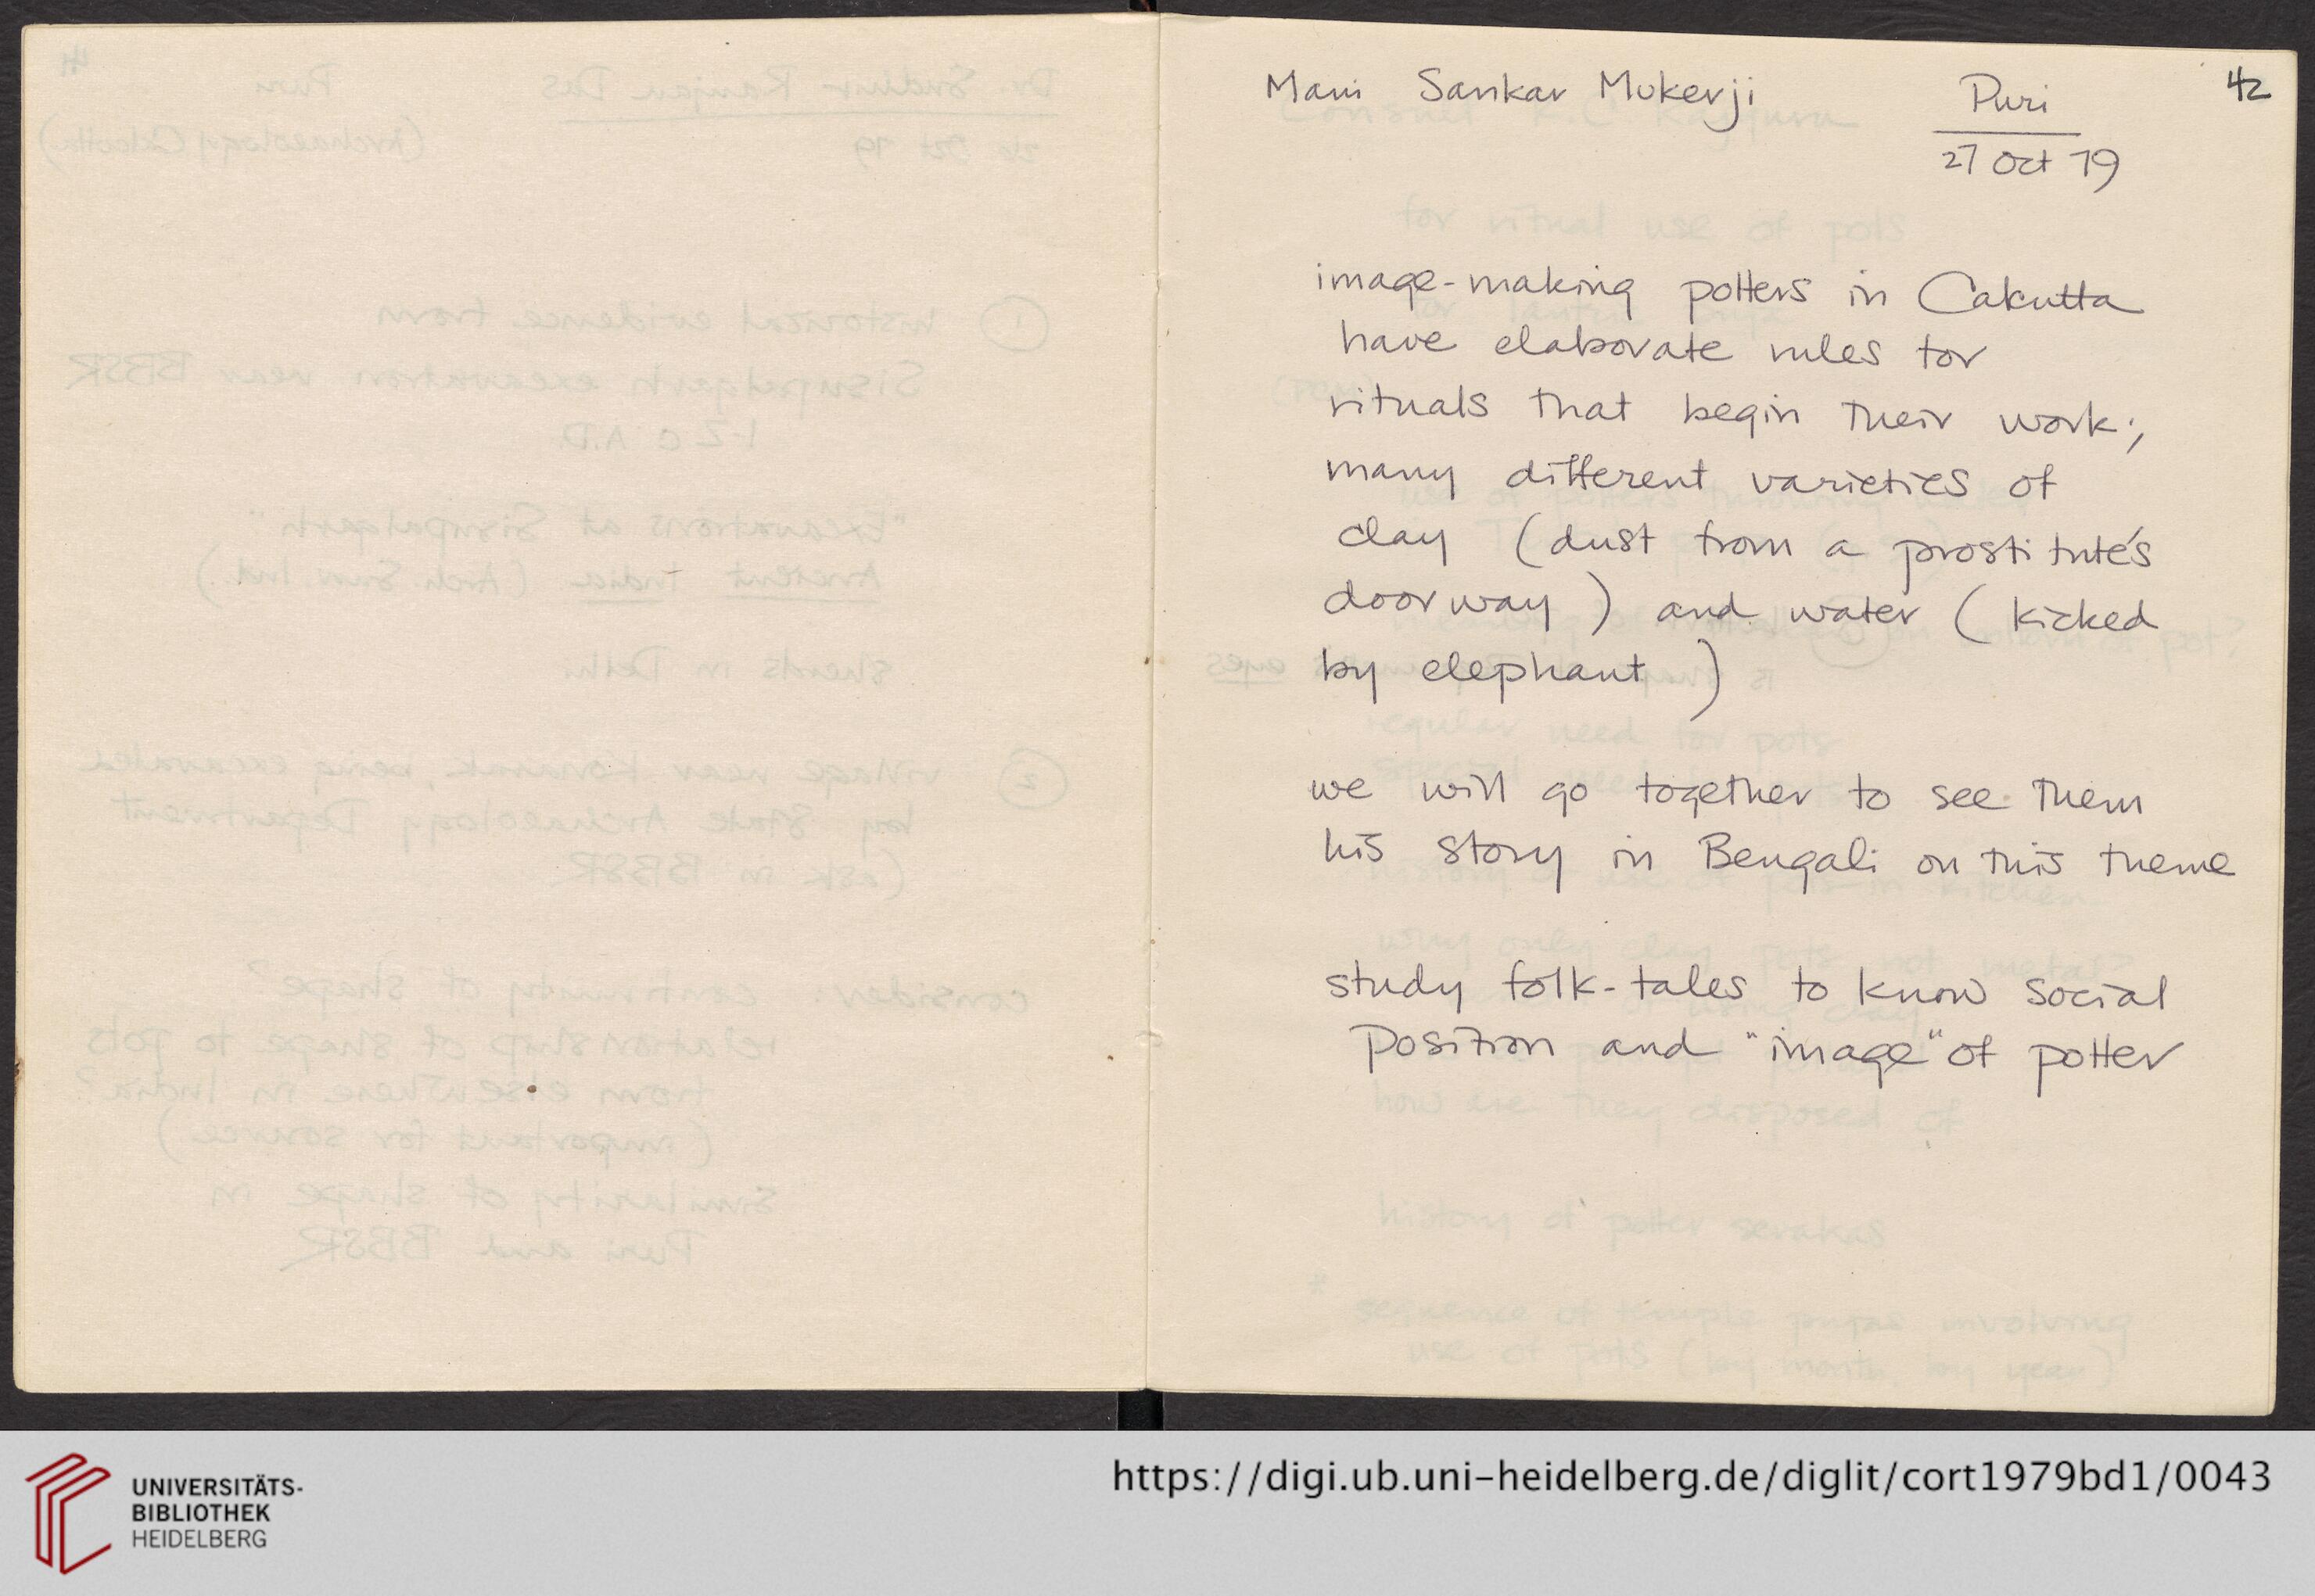 Mani Sankar Mukerji
Puri
42
27 Oct 79
image-making potters in Calcutta
have elaborate rules for
rituals that begin their work;
many different varieties of
clay (dust from a prostitute's
doorway) and water (kicked
by elephant)
we will go together to see them
his story in Bengali on this theme
study folk-tales to know social
position and "image" of potter
UNIVERSITÄTS-
BIBLIOTHEK
HEIDELBERG
https://digi.ub.uni-heidelberg.de/diglit/cort1979bd1/0043